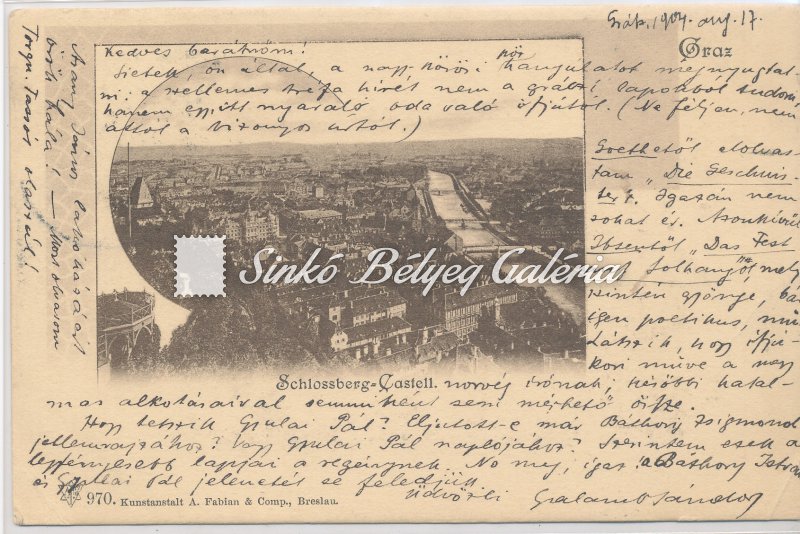 Gráz, 1904. aug. 17.
Graz
Kedves barátnőm!
Sietek, ön által, a nagy-kőrösi kör hangulatot megnyugtat-
ni: a kellemes tréfa hírét nem a grázi lapokból tudom,
hanem együtt nyaraló oda való ifjútól. (Ne féljen, nem
attól a bizonyos úrtól.)
Goethetől elolvas-
tam "Die Geschwis-
ter"-t. Igazán nem
sokat ér. Azonkívül
Ibsentől "Das Fest
auf Solhaug"ot, mely
szintén gyönge,
igen poétikus,
Látszik, hogy ifjú-
kori műve a nagy
Schlossberg-Castell.
norvég írónak, későbbi hatal-
mas alkotásaival semmiként sem mérhető össze.
Hogy tetszik Gyulai Pál? Eljutott-e már Báthory Zsigmond
jellemrajzához? Vagy Gyulai Pál naplójához? Szerintem ezek a
legfényesebb lapjai a regénynek. No meg, igaz: a Báthory István
és Gyulai Pál jelenetét se feledjük
Üdvözli Galamb Sándor
Arany János lakodalmáért
örök hála! — Most olvasom
Torqu. Tassót olaszul!
Sinkó Bélyeg Galéria
970. Kunstanstalt A. Fabian & Comp., Breslau.